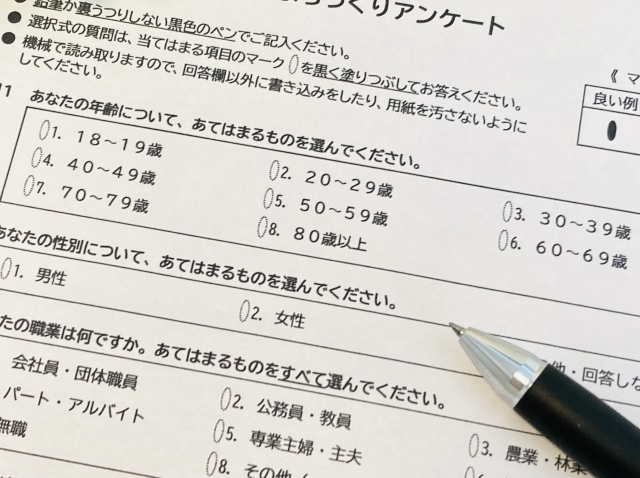 づくりアンケート
● 鉛筆か裏うつりしない黒色のペンでご記入ください。
● 選択式の質問は、当てはまる項目のマーク を黒く塗りつぶしてお答えください。
● 機械で読み取りますので、回答欄以外に書き込みをしたり、用紙を汚さないように
してください。
《 マ
良い例
1 あなたの年齢について、あてはまるものを選んでください。
1. 18～19歳 2. 20～29歳 3. 30～39歳
4. 40～49歳 5. 50～59歳 6. 60～69歳
7. 70～79歳 8. 80歳以上
あなたの性別について、あてはまるものを選んでください。
1. 男性 2. 女性 他・回答しな
たの職業は何ですか。あてはまるものをすべて選んでください。
会社員・団体職員 2. 公務員・教員 3. 農業・林業
パート・アルバイト 5. 専業主婦・主夫
無職 8. その他